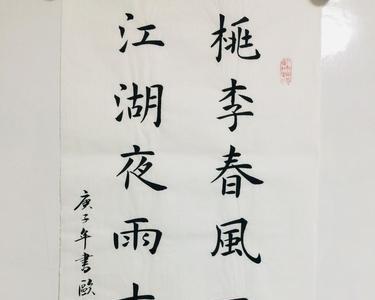 桃李春風
江湖夜雨
庚子年書歐